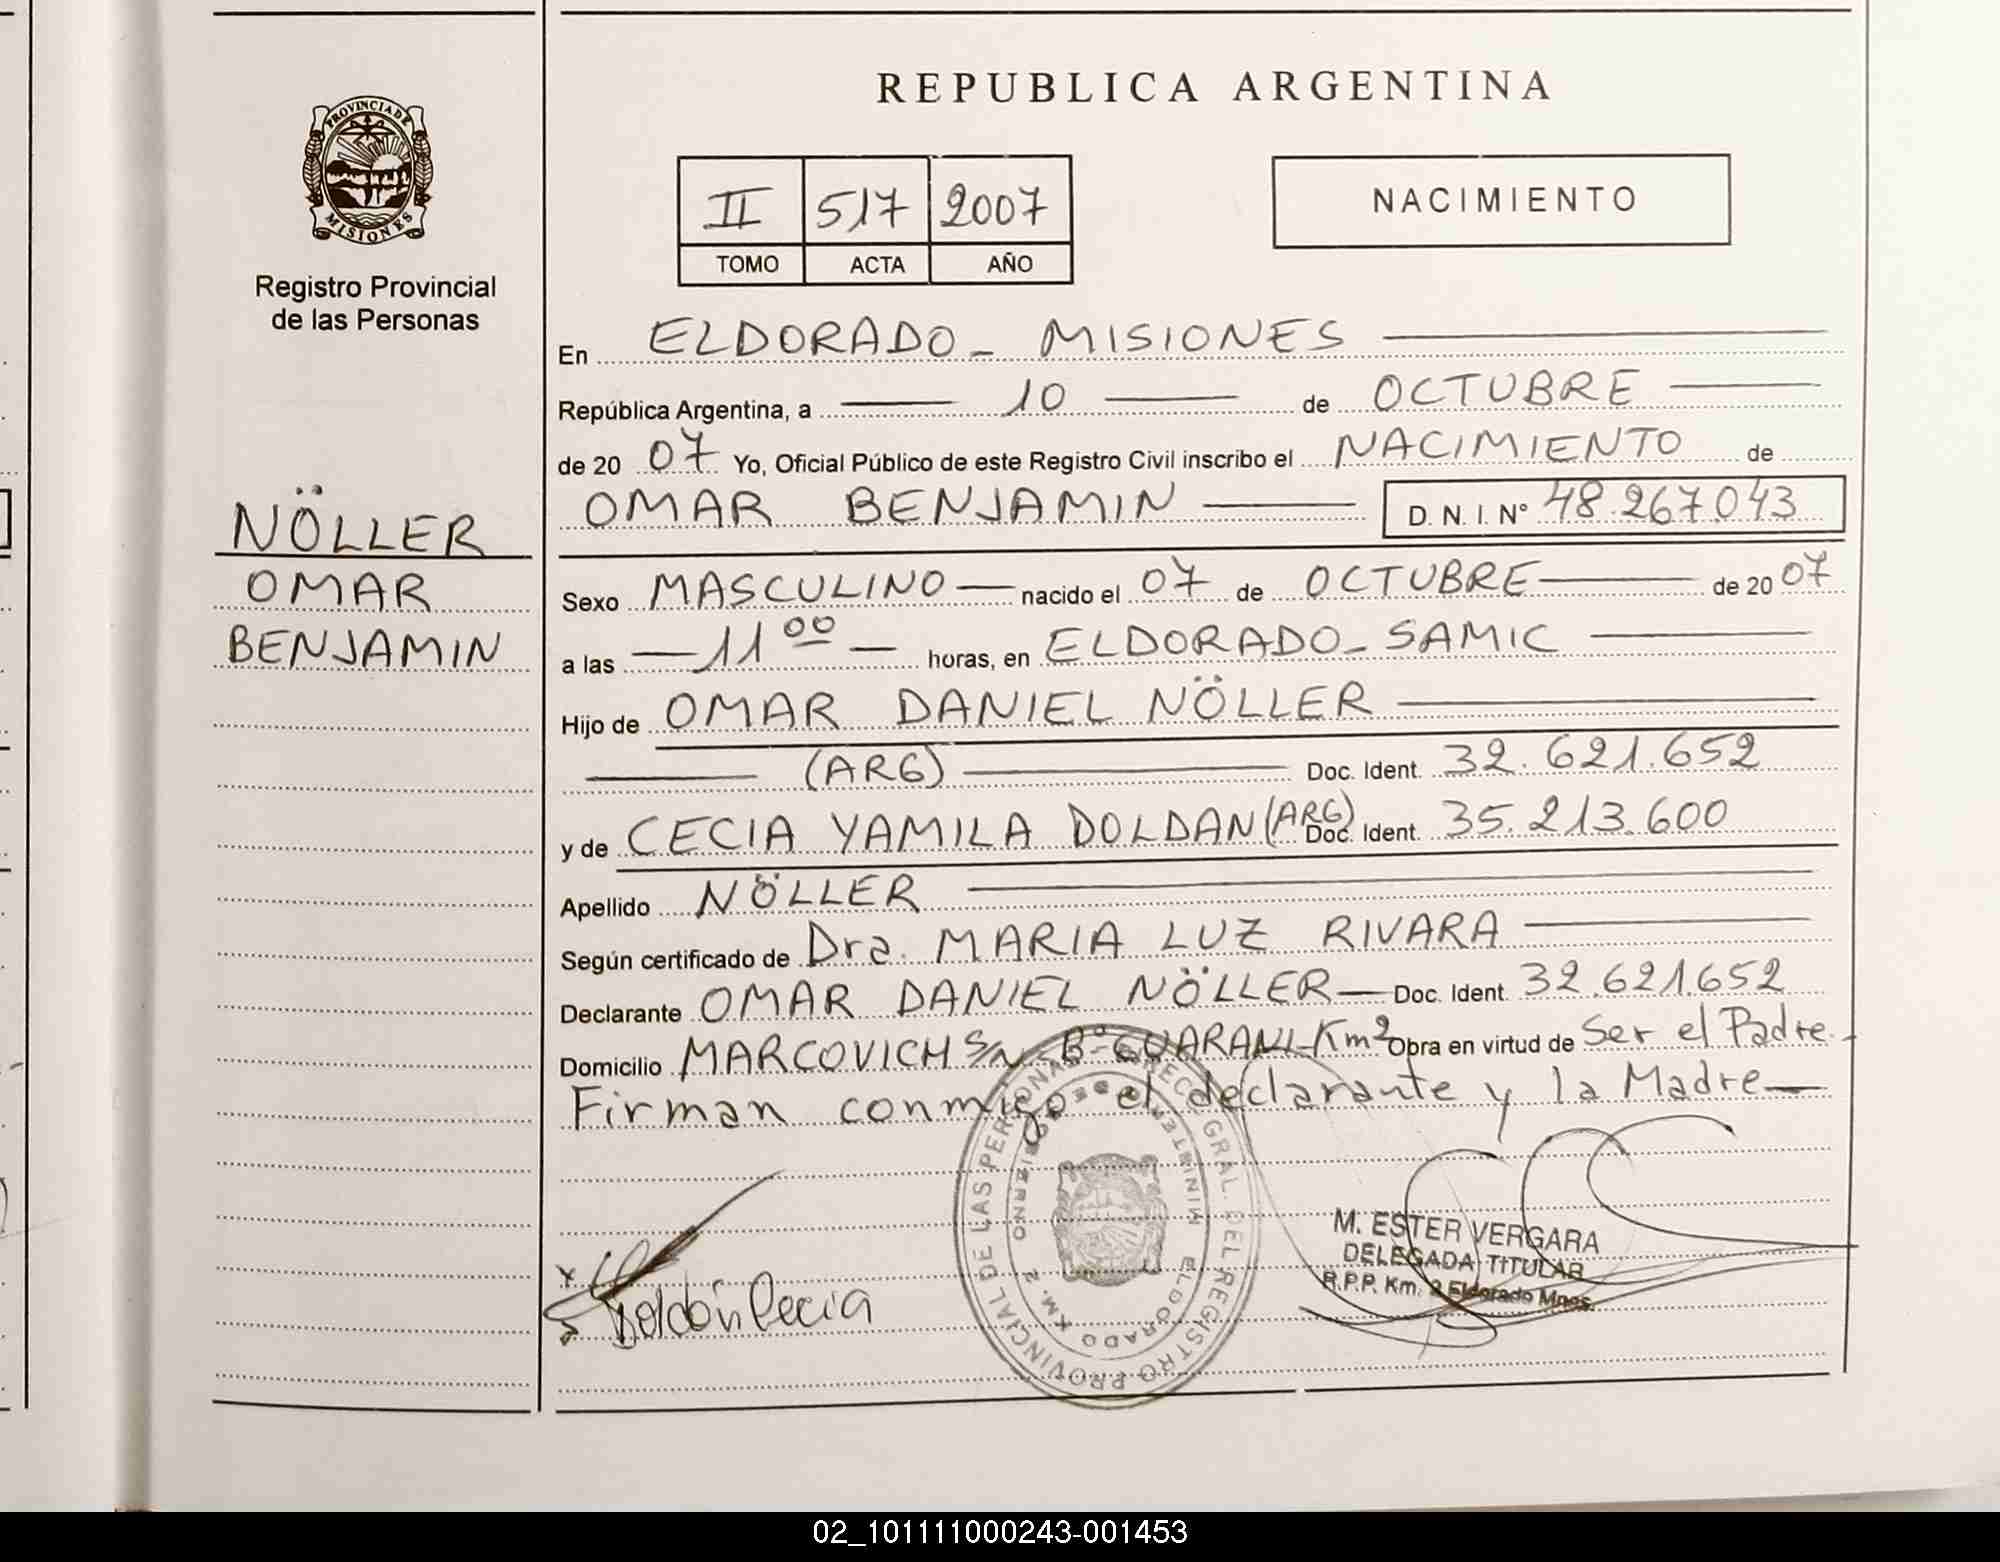 PROVINCIA DE
MISIONES
Registro Provincial
de las Personas
NÖLLER
OMAR
BENJAMIN
REPUBLICA ARGENTINA
II 517 2007
TOMO ACTA AÑO
NACIMIENTO
En ELDORADO - MISIONES
República Argentina, a 10 de OCTUBRE
de 20 07 Yo, Oficial Público de este Registro Civil inscribo el NACIMIENTO de
OMAR BENJAMIN D. N. I. N° 48.267.043
Sexo MASCULINO nacido el 07 de OCTUBRE de 20 07
a las 11 00 horas, en ELDORADO - SAMIC
Hijo de OMAR DANIEL NÖLLER
(ARG) Doc. Ident. 32.621.652
y de CECIA YAMILA DOLDAN (ARG) Doc. Ident. 35.213.600
Apellido NÖLLER
Según certificado de Dra. MARIA LUZ RIVARA
Declarante OMAR DANIEL NÖLLER Doc. Ident. 32.621.652
Domicilio MARCOVICH S/N - B° GUARANI - Km 2 Obra en virtud de Ser el Padre.
Firman conmigo el declarante y la Madre
Doldán Cecia
DIRECC. GRAL. DEL REGISTRO PROVINCIAL DE LAS PERSONAS
ELDORADO KM. 2
M. ESTER VERGARA
DELEGADA TITULAR
R.P.P. Km. 2 Eldorado Mnes.
02_101111000243-001453